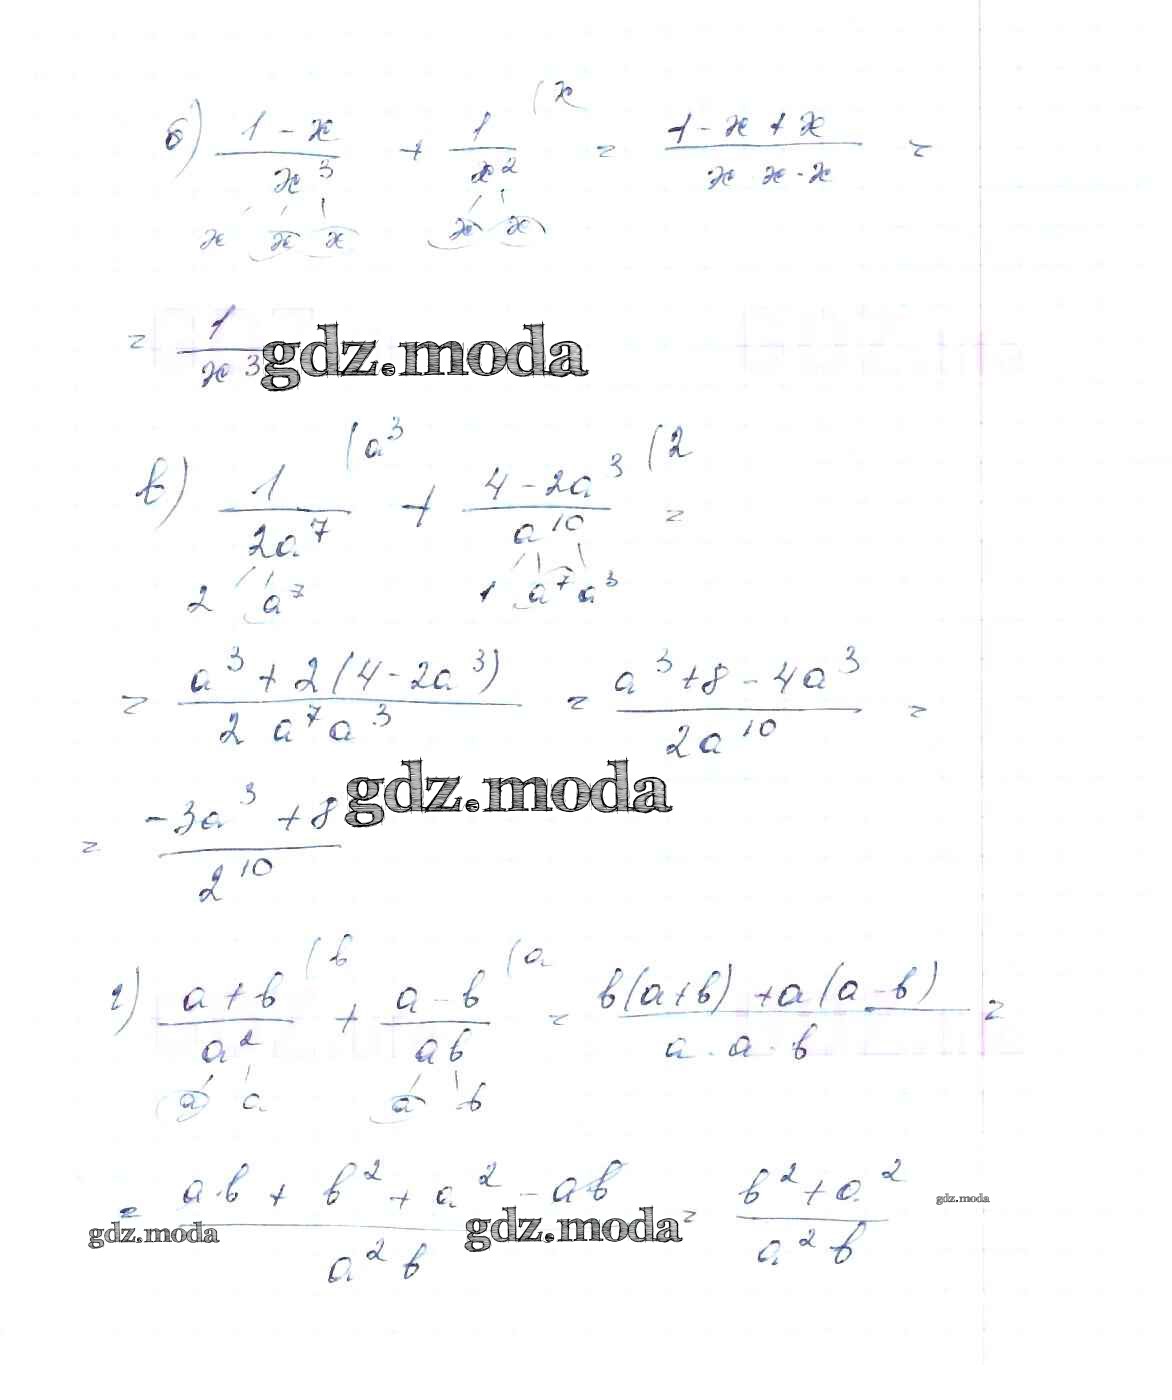 б) (1-x)/x³ + 1/x² (x = (1-x+x)/(x x·x) =
x x x x x
= 1/x³ gdz.moda
в) 1/(2a⁷) (a³ + (4-2a³)/a¹⁰ (2 =
2 a⁷ 1 a⁷ a³
= (a³+2(4-2a³))/(2 a⁷a³) = (a³+8-4a³)/(2a¹⁰) =
gdz.moda
= (-3a³+8)/2¹⁰
г) (a+b)/a² (b + (a-b)/(ab) (a = (b(a+b)+a(a-b))/(a·a·b) =
a a a b
= (ab+b²+a²-ab)/(a²b) = (b²+a²)/(a²b) gdz.moda
gdz.moda gdz.moda